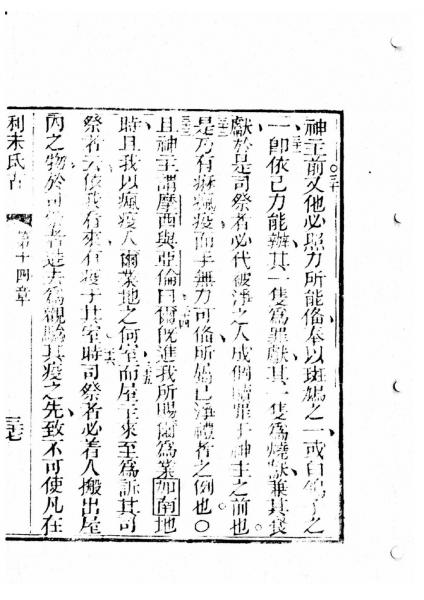 神主前又他必照力所能偹奉以斑鳩之一或白鴿子之
一卽依己力能辦其一隻爲罪獻其一隻爲燒獻兼其餐
獻於是司祭者必代被淨之人成個贖罪于神主之前也
是乃有痳瘋疫而手無力可偹所己淨禮者之例也〇
且神主謂摩西與亞倫曰爾旣進我所賜爾爲業加南地
時且我以瘋疫入爾業地之何室而屋主來至爲訴其司
祭者云依我看來有疫于其室時司祭者必着人搬出屋
內之物於司祭者進去爲觀驗其疫之先致不可使凡在
利未氏古
第十四章
三七